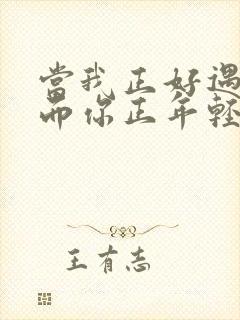 當我正好遇
而你正年輕
王有志